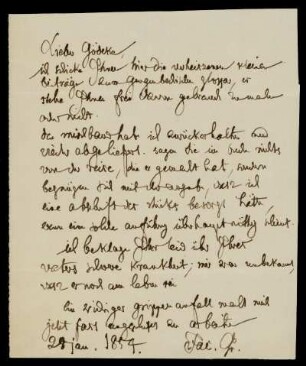 Lieber Gödeke,
ich schicke Ihnen hier die verheiszenen kleinen
beiträge zum gengenbachischen glossar, es
steht Ihnen frei davon gebrauch zu machen
oder nicht.
hat zurückerhalten und
abgeliefert. sagen sie ihm nichts
von der reise, die er gemacht hat, sondern
begnügen sich mit der angabe, dasz ich
eine abschrift des stückes besorgt hätte,
denn eine solche ausführung überhaupt nichts dient.
ich beklage Ihr leid über Ihres
vaters schwere krankheit; mir war unbekannt,
dasz er noch am leben sei.
Ein widriger grippeanfall macht mich
jetzt fast unfähig zu arbeiten
29 jan. 1854. Jac. Gr.